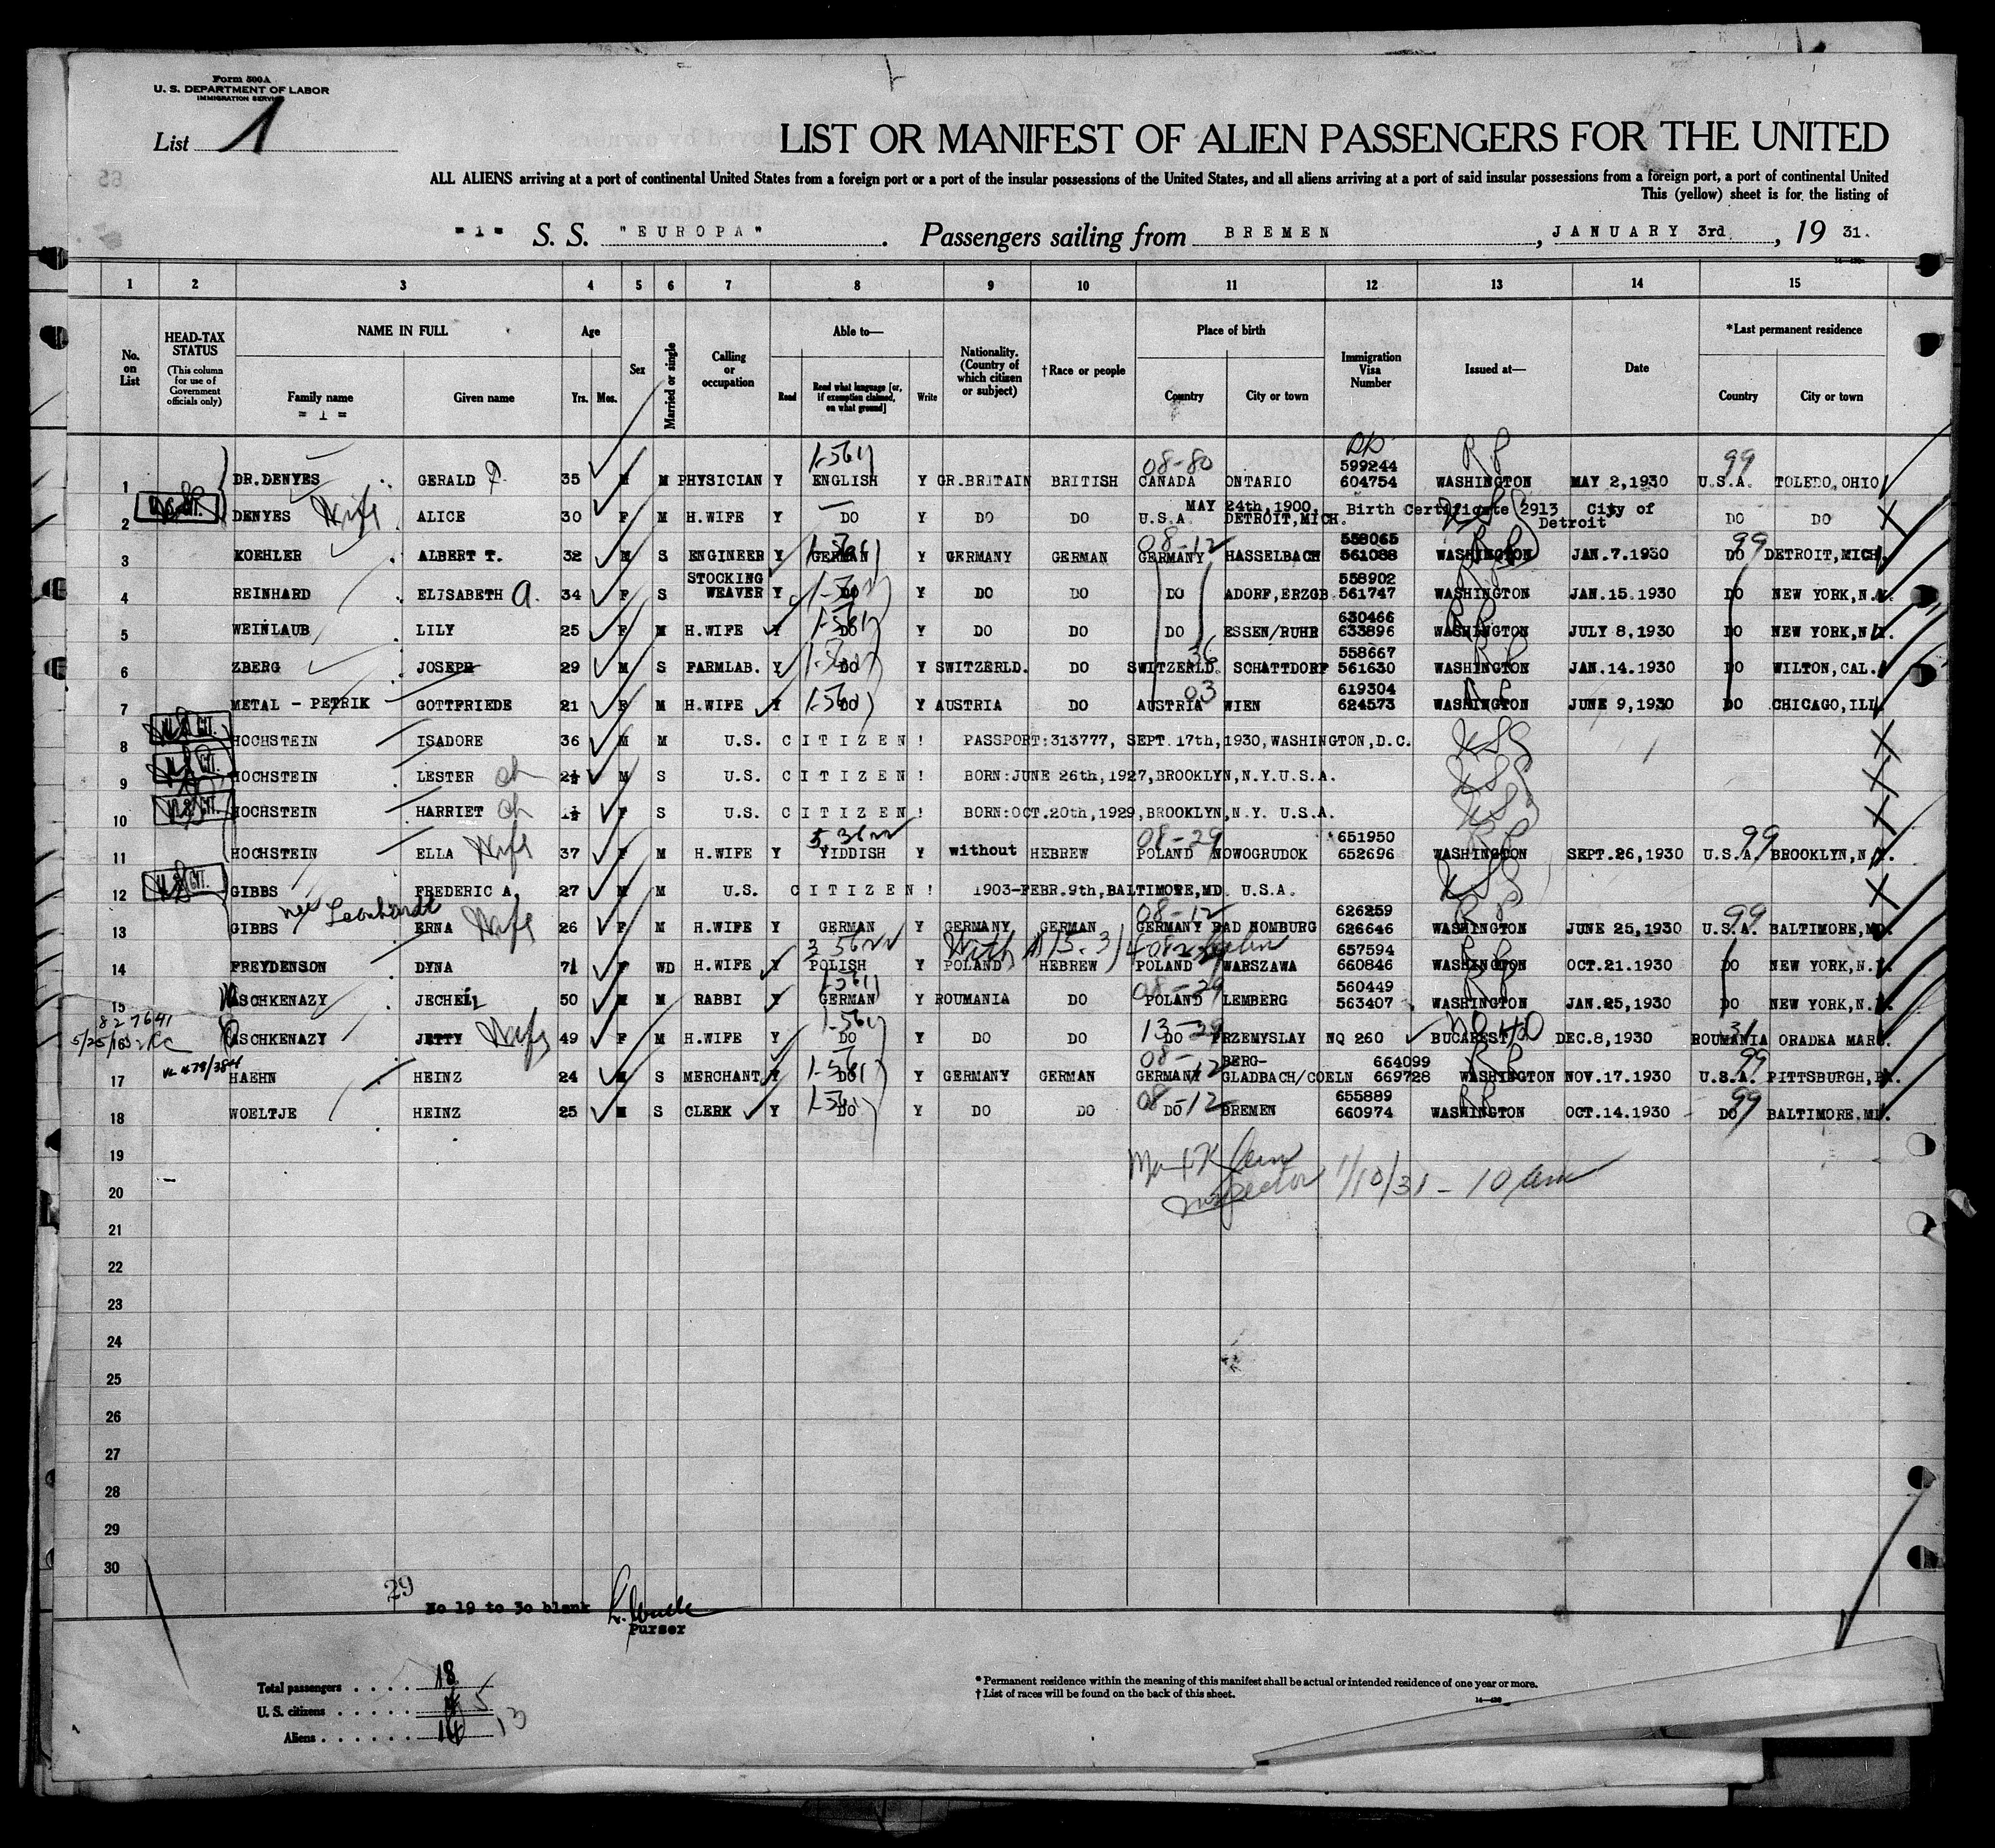 Form 500A
U. S. DEPARTMENT OF LABOR
IMMIGRATION SERVICE
List 1
LIST OR MANIFEST OF ALIEN PASSENGERS FOR THE UNITED
ALL ALIENS arriving at a port of continental United States from a foreign port or a port of the insular possessions of the United States, and all aliens arriving at a port of said insular possessions from a foreign port, a port of continental United
This (yellow) sheet is for the listing of
= 1 = S. S. "EUROPA" . Passengers sailing from BREMEN , JANUARY 3rd. , 19 31.
1 2 3 4 5 6 7 8 9 10 11 12 13 14 15
No. on List
HEAD-TAX STATUS
(This column for use of Government officials only)
NAME IN FULL
Family name
= 1 =
Given name
Age
Yrs. Mos.
Sex
Married or single
Calling or occupation
Able to—
Read
Read what language [or, if exemption claimed, on what ground]
Write
Nationality. (Country of which citizen or subject)
†Race or people
Place of birth
Country
City or town
Immigration Visa Number
Issued at—
Date
*Last permanent residence
Country
City or town
1 DR.DENYES GERALD 35 M M PHYSICIAN Y ENGLISH Y GR.BRITAIN BRITISH 08-80 CANADA ONTARIO 599244 604754 WASHINGTON MAY 2,1930 99 U.S.A. TOLEDO,OHIO
2 DENYES Wife ALICE 30 F M H.WIFE Y DO Y DO DO U.S.A. MAY 24th,1900, DETROIT,MICH. Birth Certificate 2913 City of Detroit DO DO
3 KOEHLER ALBERT T. 32 M S ENGINEER Y GERMAN Y GERMANY GERMAN 08-12 GERMANY HASSELBACH 558065 561088 WASHINGTON JAN.7.1930 99 DO DETROIT,MICH.
4 REINHARD ELISABETH A. 34 F S STOCKING WEAVER Y DO Y DO DO DO ADORF,ERZGB. 558902 561747 WASHINGTON JAN.15.1930 DO NEW YORK,N.Y.
5 WEINLAUB LILY 25 F M H.WIFE Y DO Y DO DO DO ESSEN/RUHR 630466 633896 WASHINGTON JULY 8,1930 DO NEW YORK,N.Y.
6 ZBERG JOSEPH 29 M S FARMLAB. Y DO Y SWITZERLD. DO SWITZERLD. 36 SCHATTDORF 558667 561630 WASHINGTON JAN.14.1930 DO WILTON,CAL.
7 METAL - PETRIK GOTTFRIEDE 21 F M H.WIFE Y DO Y AUSTRIA DO AUSTRIA 03 WIEN 619304 624573 WASHINGTON JUNE 9,1930 DO CHICAGO,ILL.
8 HOCHSTEIN ISADORE 36 M M U.S. CITIZEN! PASSPORT:313777, SEPT.17th,1930,WASHINGTON,D.C.
9 HOCHSTEIN LESTER ch 2½ M S U.S. CITIZEN! BORN:JUNE 26th,1927,BROOKLYN,N.Y.U.S.A.
10 HOCHSTEIN HARRIET ch 1½ F S U.S. CITIZEN! BORN:OCT.20th,1929,BROOKLYN,N.Y. U.S.A.
11 HOCHSTEIN ELLA Wife 37 F M H.WIFE Y YIDDISH Y without HEBREW 08-29 POLAND NOWOGRUDOK 651950 652696 WASHINGTON SEPT.26,1930 99 U.S.A. BROOKLYN,N.Y.
12 GIBBS FREDERIC A. 27 M M U.S. CITIZEN! 1903-FEBR.9th,BALTIMORE,MD. U.S.A.
13 GIBBS nee Leonhardt ERNA Wife 26 F M H.WIFE Y GERMAN Y GERMANY GERMAN 08-12 GERMANY BAD HOMBURG 626259 626646 WASHINGTON JUNE 25,1930 99 U.S.A. BALTIMORE,MD.
14 FREYDENSON DYNA 71 F WD H.WIFE Y POLISH Y POLAND HEBREW POLAND WARSZAWA 657594 660846 WASHINGTON OCT.21.1930 DO NEW YORK,N.Y.
15 ASCHKENAZY JECHEIL 50 M M RABBI Y GERMAN Y ROUMANIA DO 08-29 POLAND LEMBERG 560449 563407 WASHINGTON JAN.25,1930 DO NEW YORK,N.Y.
827641
16 ASCHKENAZY JETTY Wife 49 F M H.WIFE Y DO Y DO DO DO PRZEMYSLAY NQ 260 BUCAREST DEC.8,1930 31 ROUMANIA ORADEA MARE.
17 HAEHN HEINZ 24 M S MERCHANT Y DO Y GERMANY GERMAN 08-12 GERMANY BERG-GLADBACH/COELN 664099 669728 WASHINGTON NOV.17.1930 99 U.S.A. PITTSBURGH,PA.
18 WOELTJE HEINZ 25 M S CLERK Y DO Y DO DO 08-12 DO BREMEN 655889 660974 WASHINGTON OCT.14.1930 99 DO BALTIMORE.MD.
19
Inspector 1/10/31 - 10 am
20
21
22
23
24
25
26
27
28
29
30
29
No 19 to 30 blank
Purser
Total passengers . . . . 18
U. S. citizens . . . . . 5
Aliens . . . . . . 14 13
* Permanent residence within the meaning of this manifest shall be actual or intended residence of one year or more.
† List of races will be found on the back of this sheet.